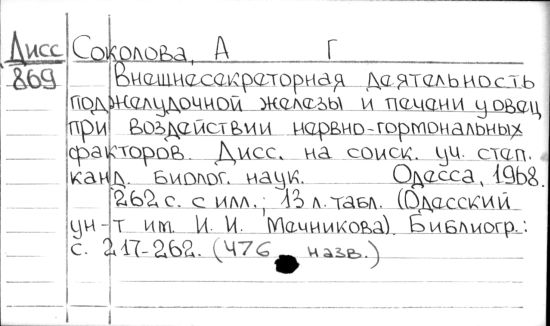 Дисс Соколова, А Г
869 Внешнесекреторная деятельность
поджелудочной железы и печени у овец
при воздействии нервно-гормональных
факторов. Дисс. на соиск. уч. степ.
канд. биолог. наук. Одесса, 1968.
262 с. с илл.; 13 л. табл. (Одесский
ун-т им. И. И. Мечникова). Библиогр.:
с. 217-262. (476 назв.)